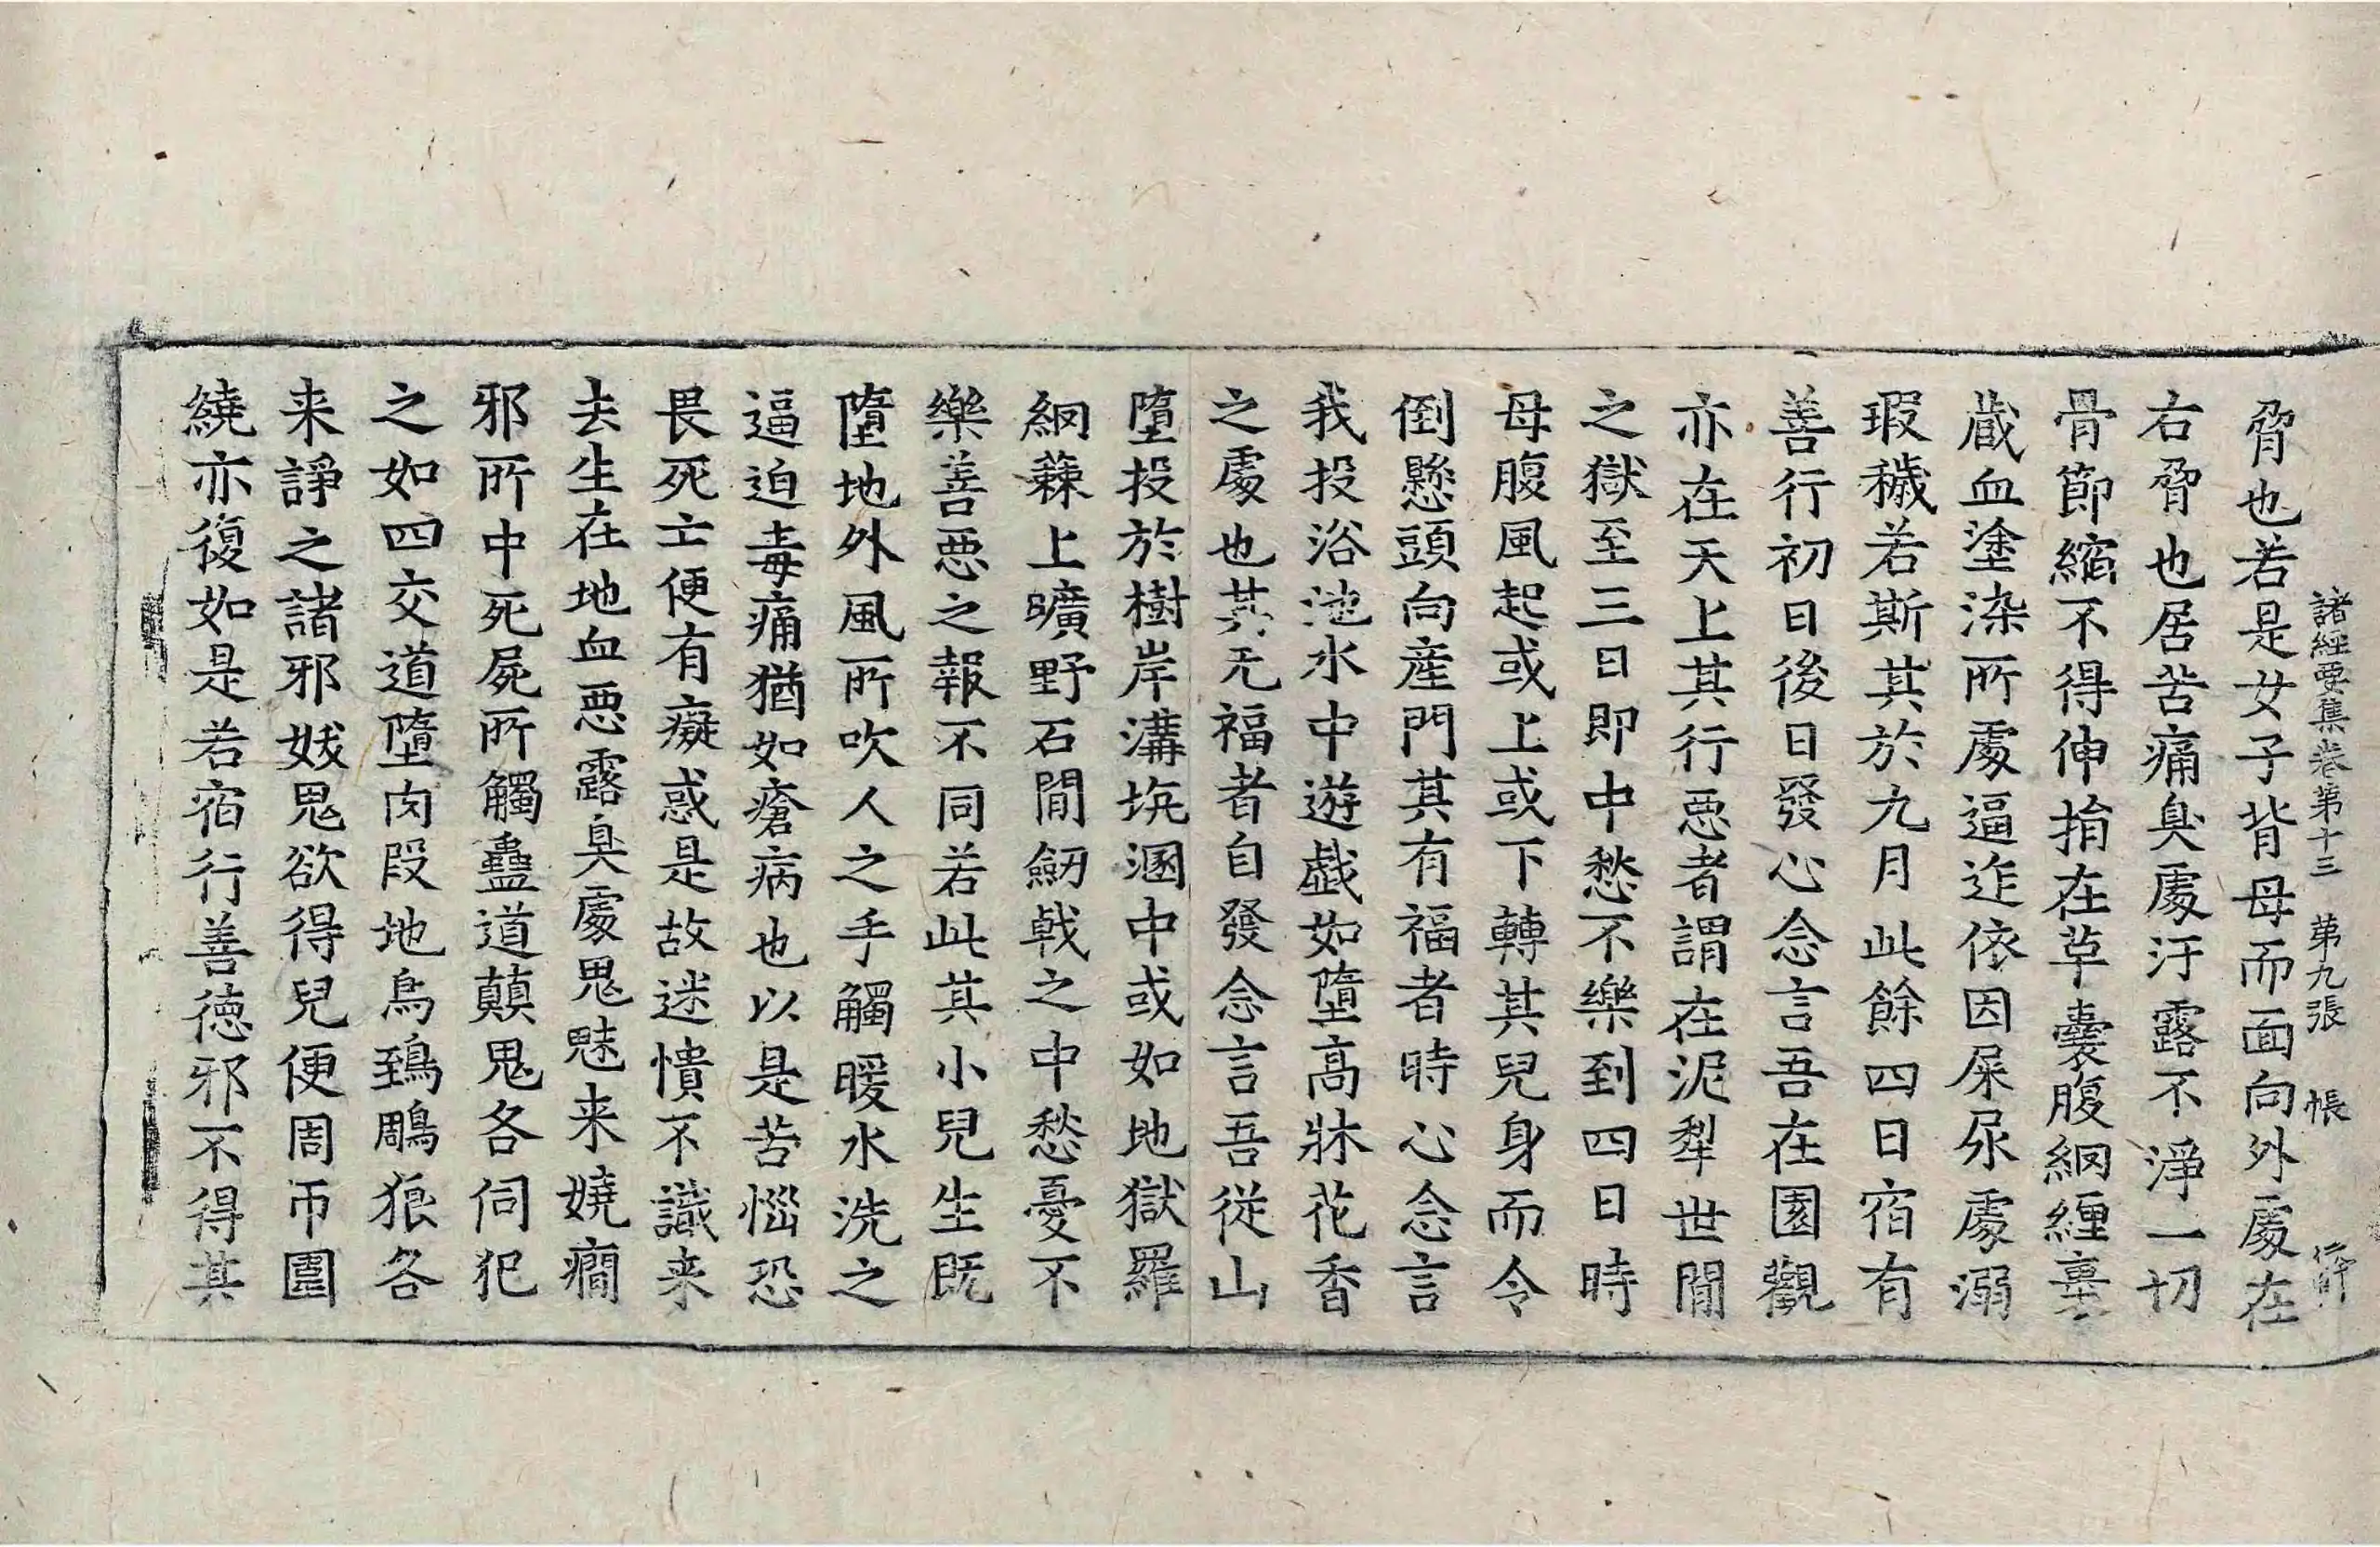 諸經要集卷第十三 第九張 帳
脅也若是女子背母而面向外處在
右脅也居苦痛臭處汙露不淨一切
骨節縮不得伸捐在草囊腹網纏裹
蔵血塗染所處逼迮依因屎尿處溺
瑕穢若斯其於九月此餘四日宿有
善行初日後日發心念言吾在園觀
亦在天上其行惡者謂在泥犁世間
之獄至三日即中愁不樂到四日時
母腹風起或上或下轉其兒身而令
倒懸頭向產門其有福者時心念言
我投浴池水中遊戲如墮高牀花香
之處也其无福者自發念言吾從山
墮投於樹岸溝坑溷中或如地獄羅
網蕀上曠野石間劒戟之中愁憂不
樂善惡之報不同若此其小兒生既
墮地外風所吹人之手觸暖水洗之
逼迫毒痛猶如瘡病也以是苦惱恐
畏死亡便有癡惑是故迷憒不識来
去生在地血惡露臭處鬼魅来嬈癇
邪所中死屍所觸蠱道蘔鬼各伺犯
之如四交道墮肉段地烏鵄鵰狼各
来諍之諸邪妖鬼欲得兒便周帀圍
繞亦復如是若宿行善德邪不得其